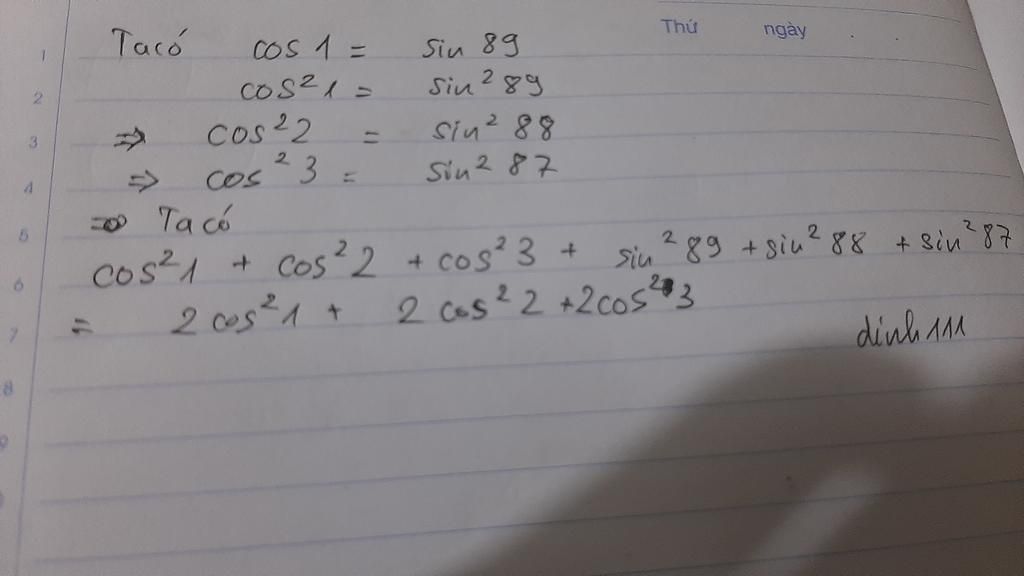 Thứ ngày
Ta có cos 1 = sin 89
cos²1 = sin² 89
⇒ cos²2 = sin² 88
⇒ cos² 3 = sin² 87
⇒ Ta có
cos²1 + cos²2 + cos²3 + sin² 89 + sin² 88 + sin² 87
= 2 cos²1 + 2 cos² 2 + 2cos² 3
dinh111
1
2
3
4
5
6
7
8
9